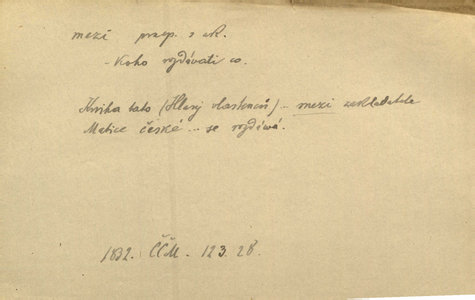 mezi praep. s ak.
- Koho rozdávati co.
Kniha tato (Hlasy vlastenců) .. mezi zakladatele
Matice české ... se rozdává.
1832. ČČM. 123. 28.